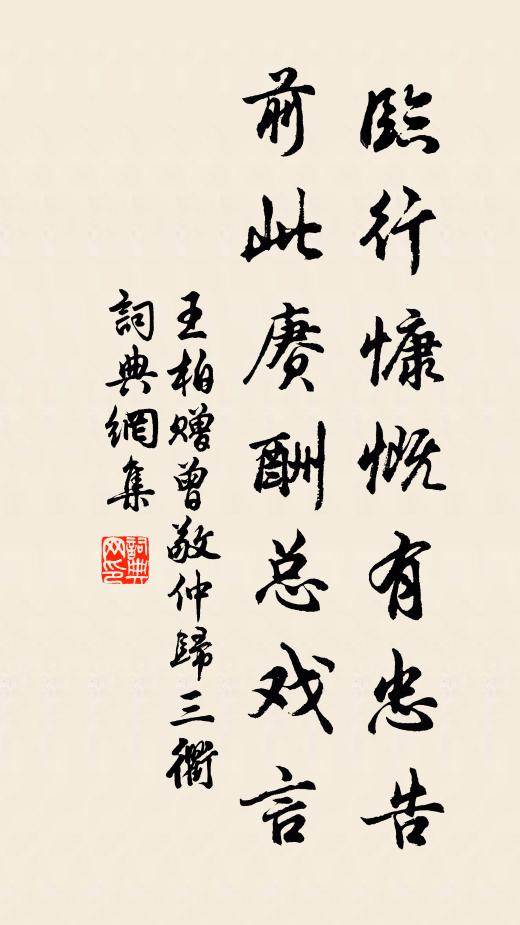 臨行慷慨有忠告
前此赓酬总戏言
王柏赠曾敬仲歸三衢
詞典網集
詞典网印